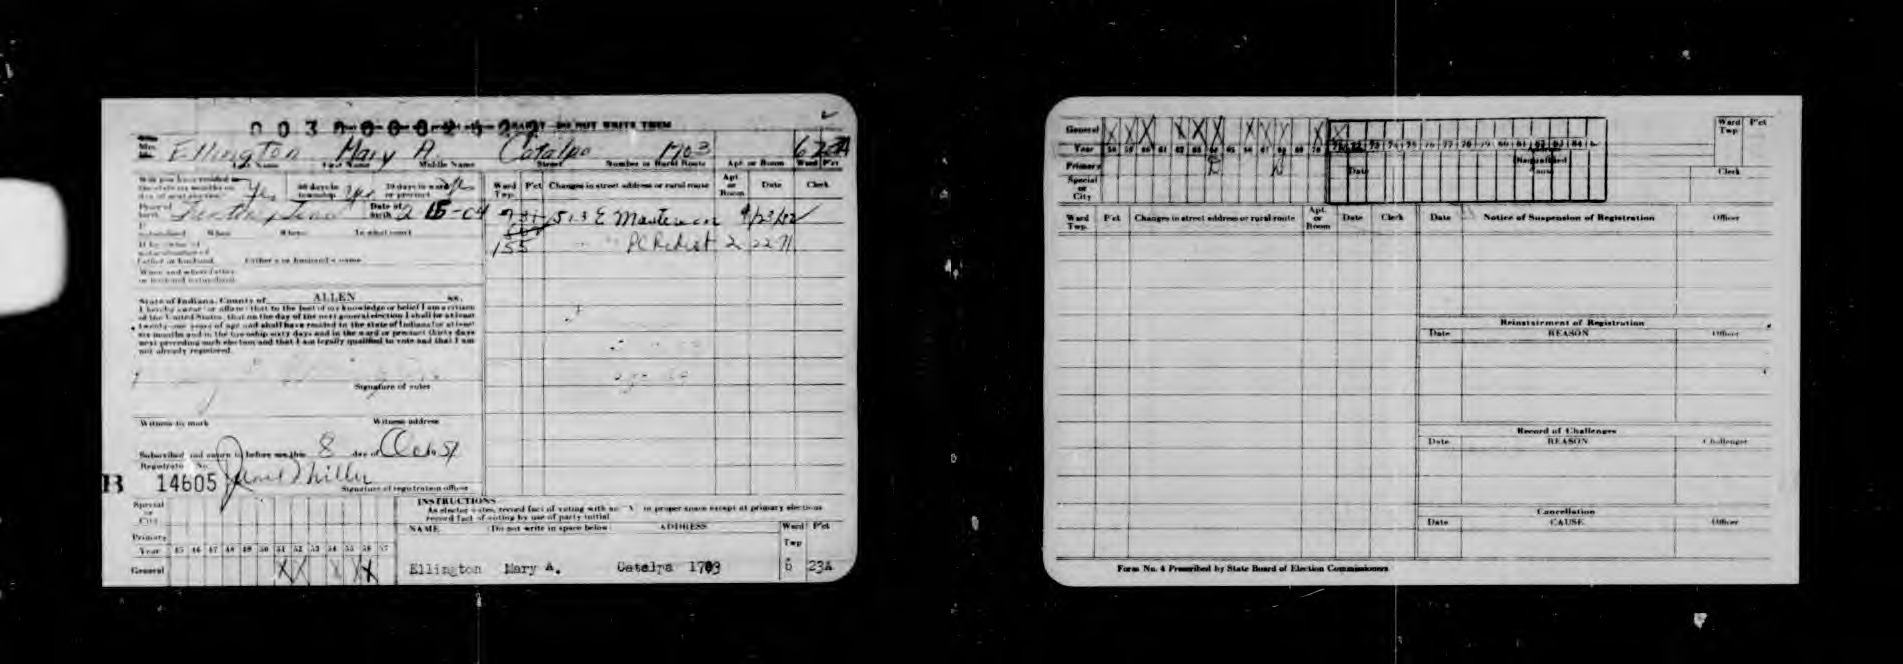 DO NOT WRITE THEM
Ellington Mary A. Catalpa 1703
Last Name First Name Middle Name Street Number or Rural Route Apt. or Room Ward P'ct
Have you resided in
the state six months on
day of next election Yes 60 days in township Yes 30 days in ward or precinct
Place of birth Date of birth 2 15-04
If naturalized When Where In what court
If by virtue of
naturalization of
Father or husband Father's or husband's name
When and where father
or husband naturalized
State of Indiana, County of ALLEN ss.
I hereby swear (or affirm) that to the best of my knowledge or belief I am a citizen
of the United States, that on the day of the next general election I shall be at least
twenty-one years of age and shall have resided in the state of Indiana for at least
six months and in the township sixty days and in the ward or precinct thirty days
next preceding such election and that I am legally qualified to vote and that I am
not already registered.
Signature of voter
Witness to mark Witness address
Subscribed and sworn to before me this 8 day of Oct 51
Registrate No.
B 14605
Signature of registration officer
Ward Twp. P'ct Changes in street address or rural route Apt. or Room Date Clerk
513 E Masterson
155 PC Redist 2 22 71
INSTRUCTIONS
As elector votes, record fact of voting with an "X" in proper space except at primary elections
record fact of voting by use of party initial.
NAME (Do not write in space below) ADDRESS Ward Twp P'ct
Ellington Mary A. Catalpa 1703 6 23A
Special or City
Primary
Year 45 46 47 48 49 50 51 52 53 54 55 56 57
General X X X X X
General
Year 58 59 60 61 62 63 64 65 66 67 68 69 70
Primary
Special or City
71 72 73 74 75 76 77 78 79 80 81 82 83 84
Date
Ward Twp. P'ct
Clerk
Ward Twp. P'ct Changes in street address or rural route Apt. or Room Date Clerk
Date Notice of Suspension of Registration Officer
Reinstatement of Registration
Date REASON Officer
Record of Challenges
Date REASON Challenger
Cancellation
Date CAUSE Officer
Form No. 4 Prescribed by State Board of Election Commissioners